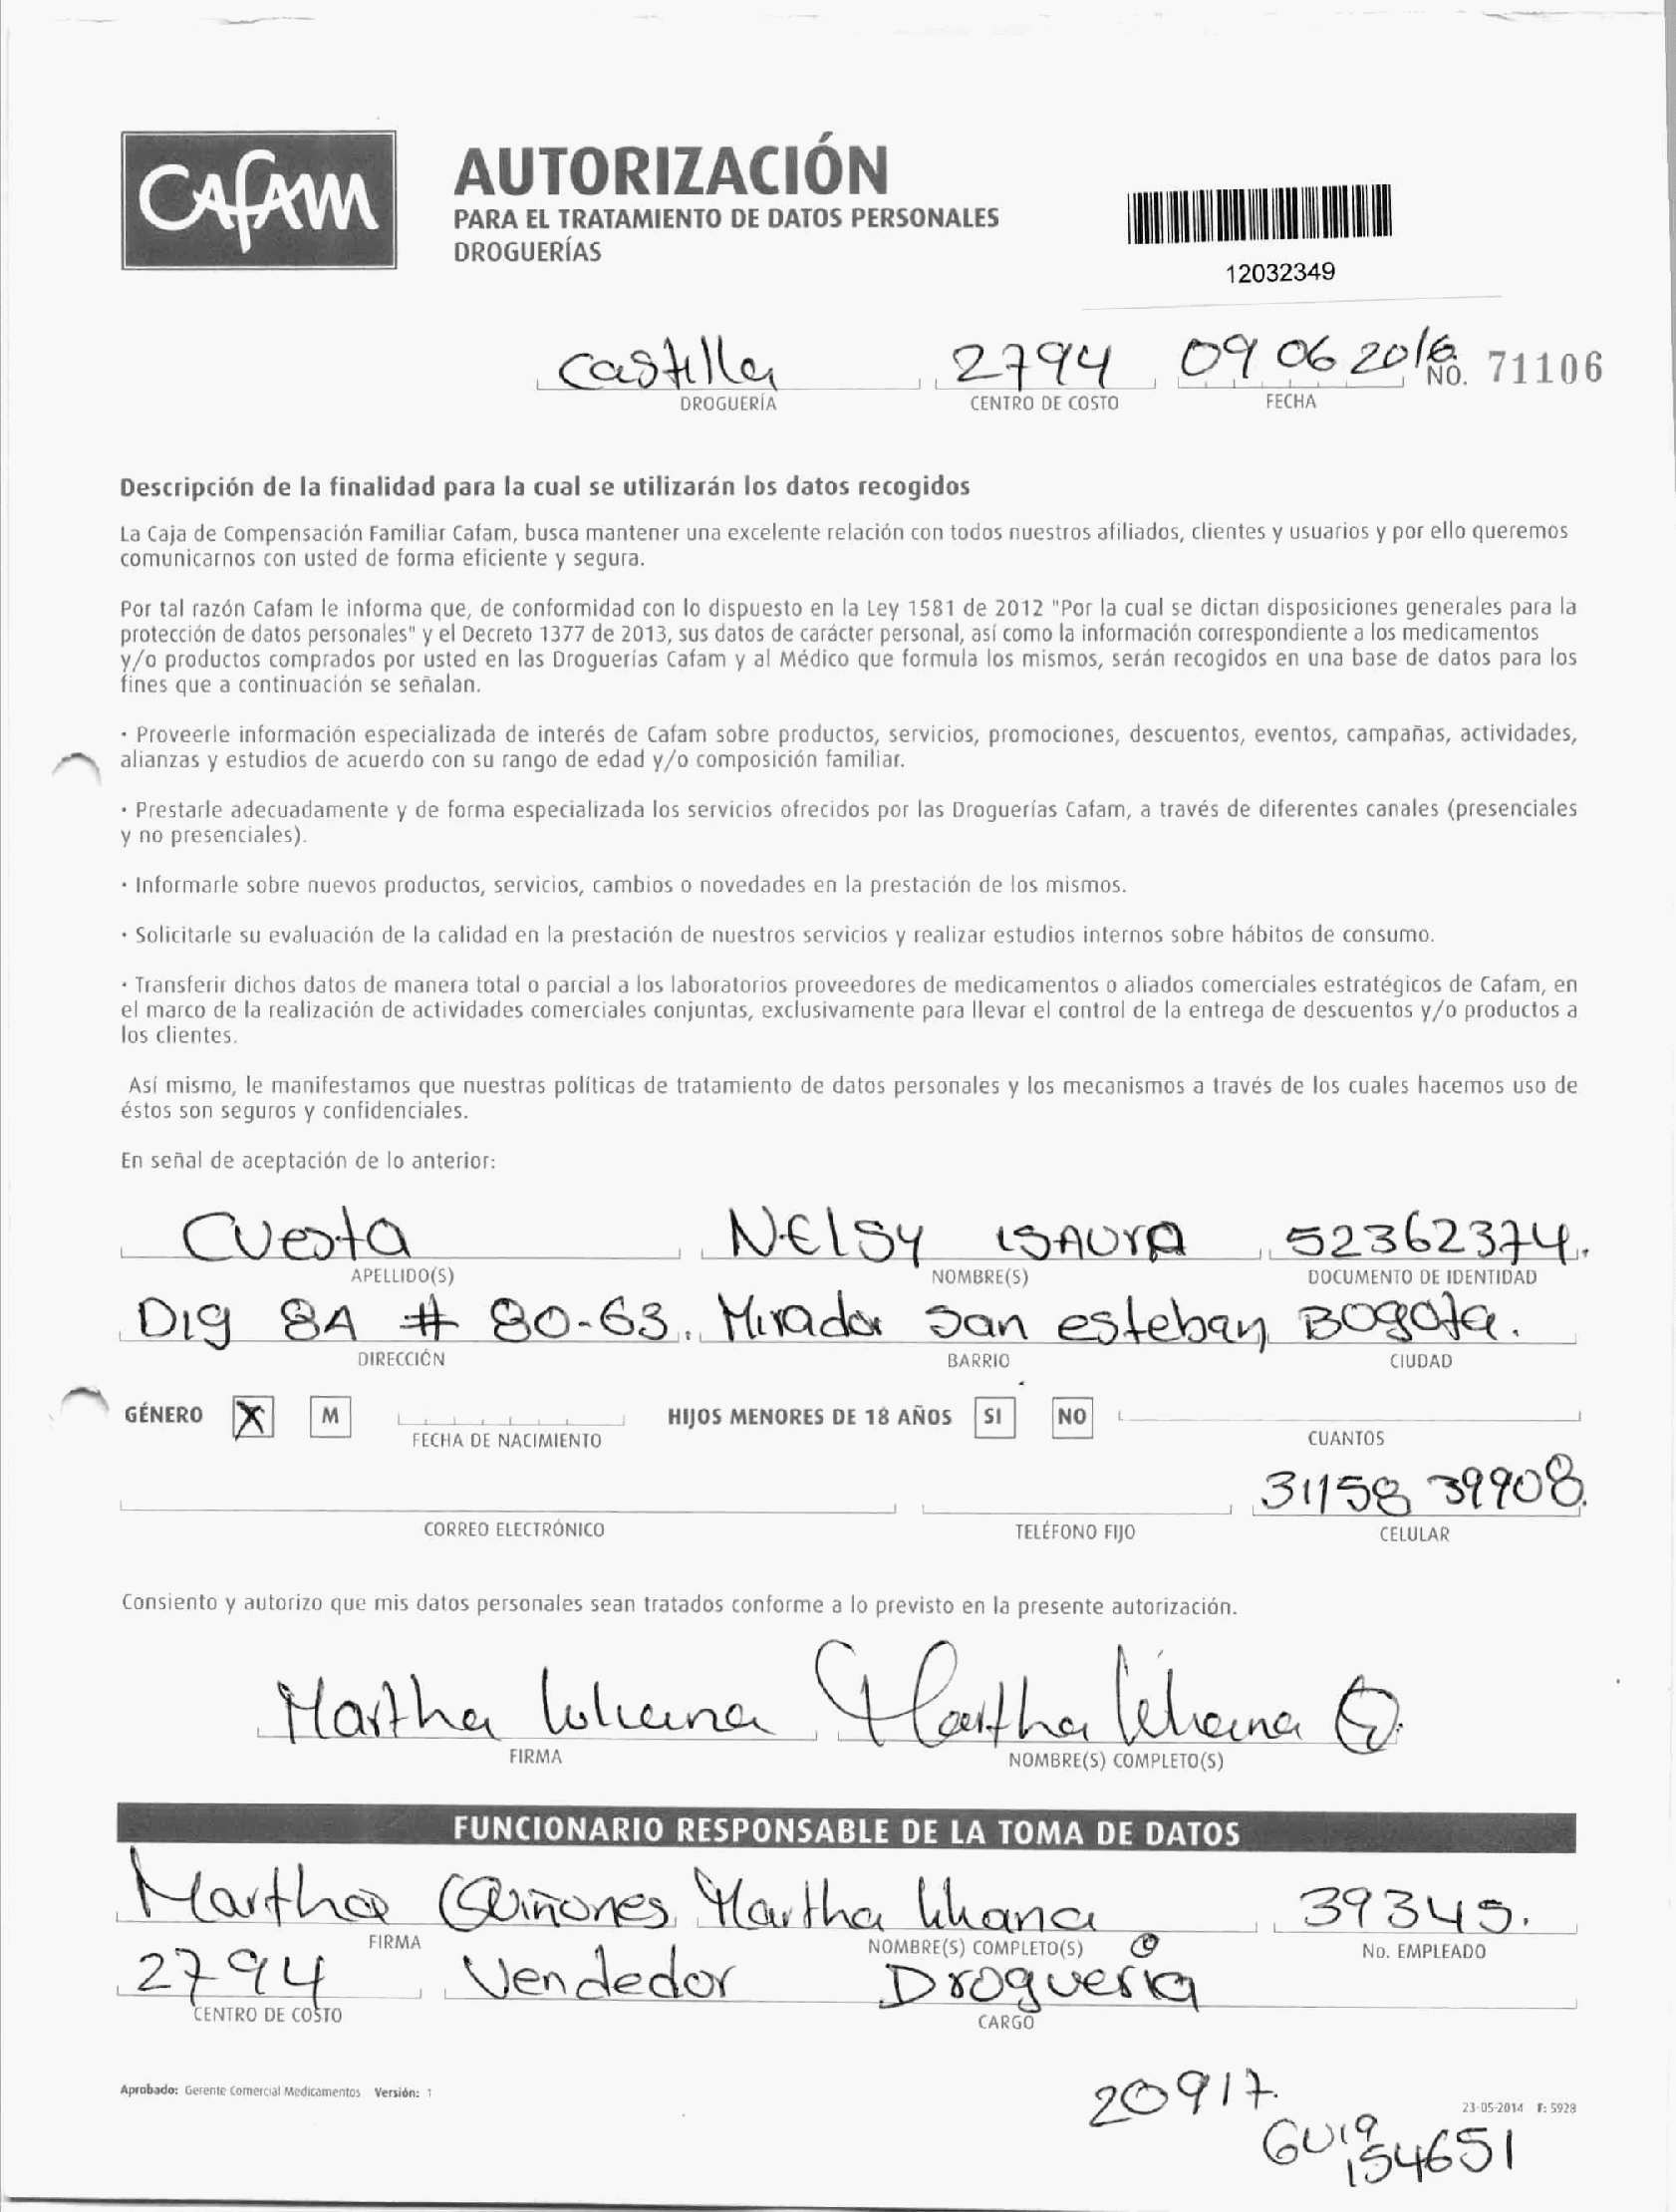 CAFAM
AUTORIZACIÓN
PARA EL TRATAMIENTO DE DATOS PERSONALES
DROGUERÍAS
12032349
Castilla 2794 09 06 2016 NO. 71106
DROGUERÍA CENTRO DE COSTO FECHA
Descripción de la finalidad para la cual se utilizarán los datos recogidos
La Caja de Compensación Familiar Cafam, busca mantener una excelente relación con todos nuestros afiliados, clientes y usuarios y por ello queremos
comunicarnos con usted de forma eficiente y segura.
Por tal razón Cafam le informa que, de conformidad con lo dispuesto en la Ley 1581 de 2012 "Por la cual se dictan disposiciones generales para la
protección de datos personales" y el Decreto 1377 de 2013, sus datos de carácter personal, así como la información correspondiente a los medicamentos
y/o productos comprados por usted en las Droguerías Cafam y al Médico que formula los mismos, serán recogidos en una base de datos para los
fines que a continuación se señalan.
· Proveerle información especializada de interés de Cafam sobre productos, servicios, promociones, descuentos, eventos, campañas, actividades,
alianzas y estudios de acuerdo con su rango de edad y/o composición familiar.
· Prestarle adecuadamente y de forma especializada los servicios ofrecidos por las Droguerías Cafam, a través de diferentes canales (presenciales
y no presenciales).
· Informarle sobre nuevos productos, servicios, cambios o novedades en la prestación de los mismos.
· Solicitarle su evaluación de la calidad en la prestación de nuestros servicios y realizar estudios internos sobre hábitos de consumo.
· Transferir dichos datos de manera total o parcial a los laboratorios proveedores de medicamentos o aliados comerciales estratégicos de Cafam, en
el marco de la realización de actividades comerciales conjuntas, exclusivamente para llevar el control de la entrega de descuentos y/o productos a
los clientes.
Así mismo, le manifestamos que nuestras políticas de tratamiento de datos personales y los mecanismos a través de los cuales hacemos uso de
éstos son seguros y confidenciales.
En señal de aceptación de lo anterior:
Cuesta NElSy ISAUrA 52362374.
APELLIDO(S) NOMBRE(S) DOCUMENTO DE IDENTIDAD
DIg 8A # 80-63. Mirador San esteban Bogota.
DIRECCIÓN BARRIO CIUDAD
GÉNERO X M HIJOS MENORES DE 18 AÑOS SI NO
FECHA DE NACIMIENTO CUANTOS
31158 39908.
CORREO ELECTRÓNICO TELÉFONO FIJO CELULAR
Consiento y autorizo que mis datos personales sean tratados conforme a lo previsto en la presente autorización.
Martha liliana Martha liliana Q.
FIRMA NOMBRE(S) COMPLETO(S)
FUNCIONARIO RESPONSABLE DE LA TOMA DE DATOS
Martha Quiñones Martha liliana Q 39345.
FIRMA NOMBRE(S) COMPLETO(S) No. EMPLEADO
2794 Vendedor Drogueria
CENTRO DE COSTO CARGO
Aprobado: Gerente Comercial Medicamentos Versión: 1
20917.
23-05-2014 F: 5928
GUIa
154651